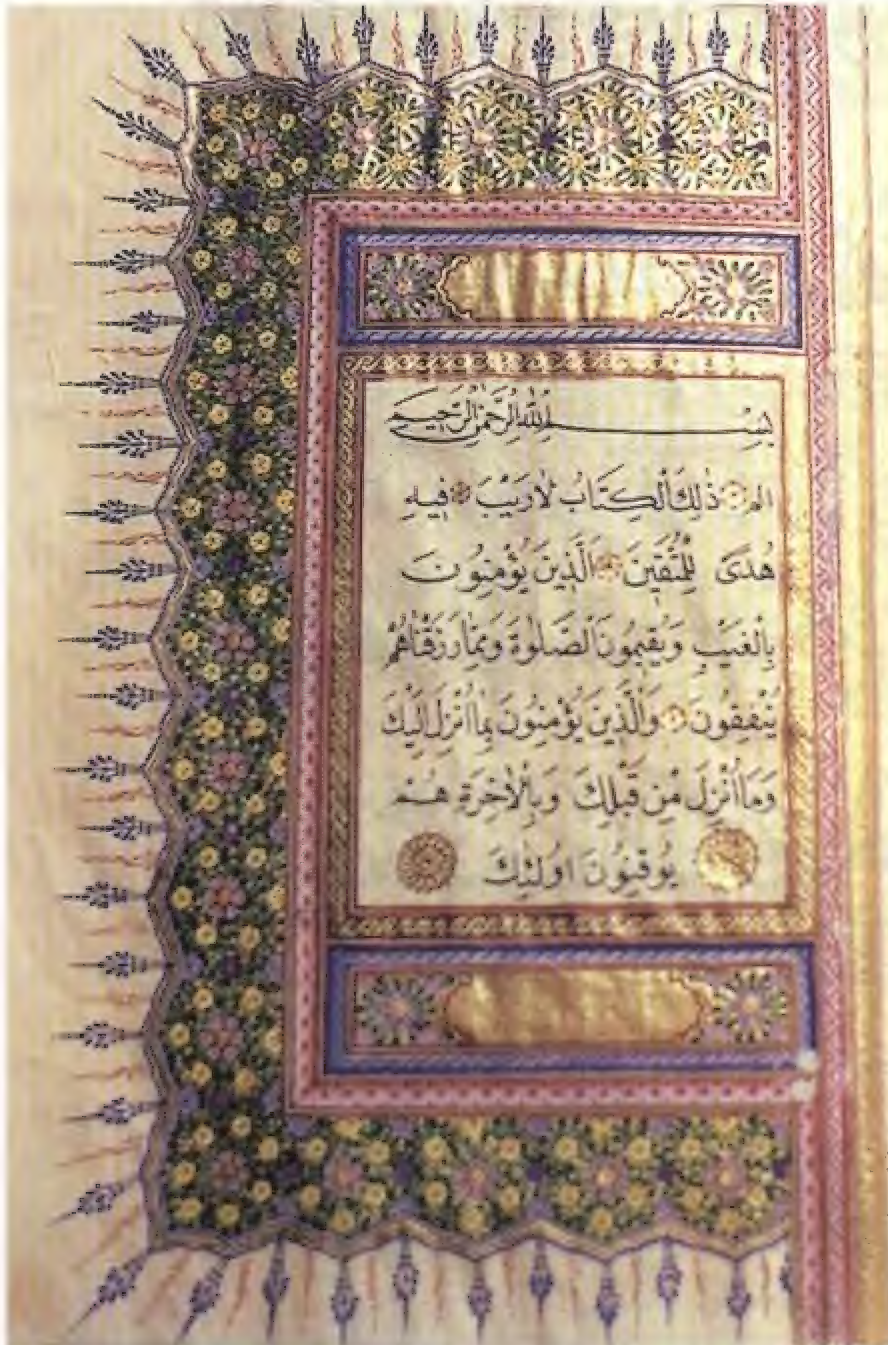 بِسْمِ اللّٰهِ الرَّحْمٰنِ الرَّحِيمِ
الم ذٰلِكَ الْكِتَابُ لَا رَيْبَ فِيهِ
هُدًى لِلْمُتَّقِينَ الَّذِينَ يُؤْمِنُونَ
بِالْغَيْبِ وَيُقِيمُونَ الصَّلٰوةَ وَمِمَّا رَزَقْنَاهُمْ
يُنْفِقُونَ وَالَّذِينَ يُؤْمِنُونَ بِمَا اُنْزِلَ اِلَيْكَ
وَمَا اُنْزِلَ مِنْ قَبْلِكَ وَبِالْاٰخِرَةِ هُمْ
يُوقِنُونَ اُولٰئِكَ